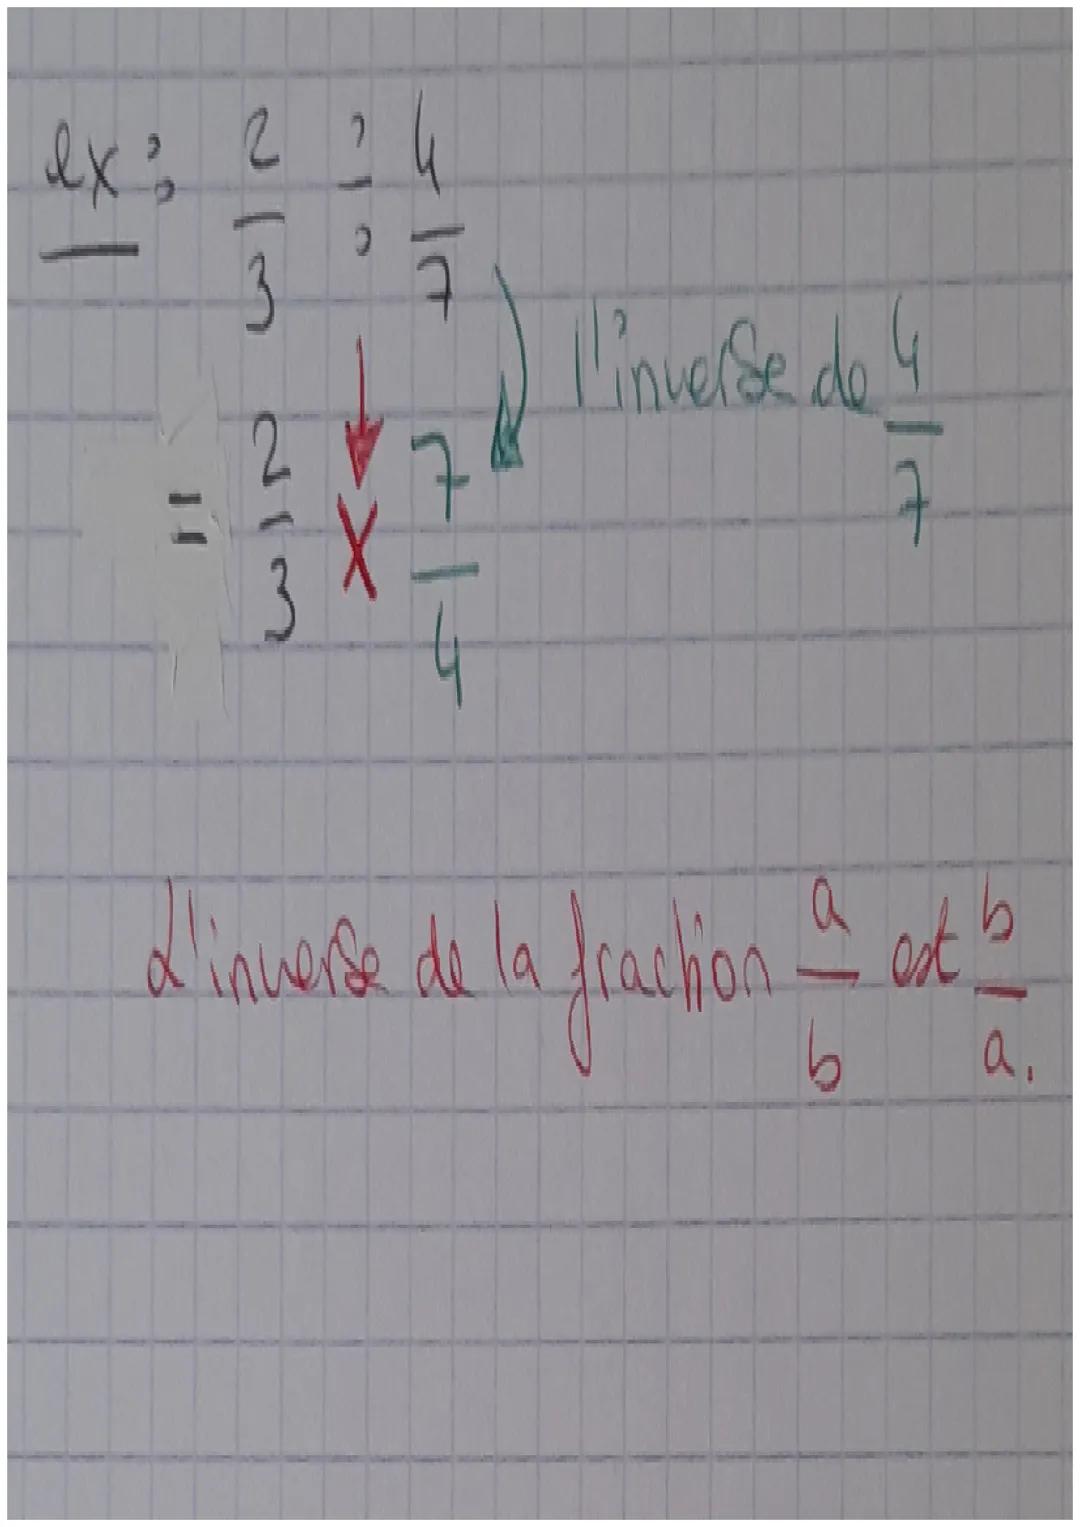 ex : 2/3 ÷ 4/7
l'inverse de 4/7
= 2/3 X 7/4
L'inverse de la fraction a/b est b/a.